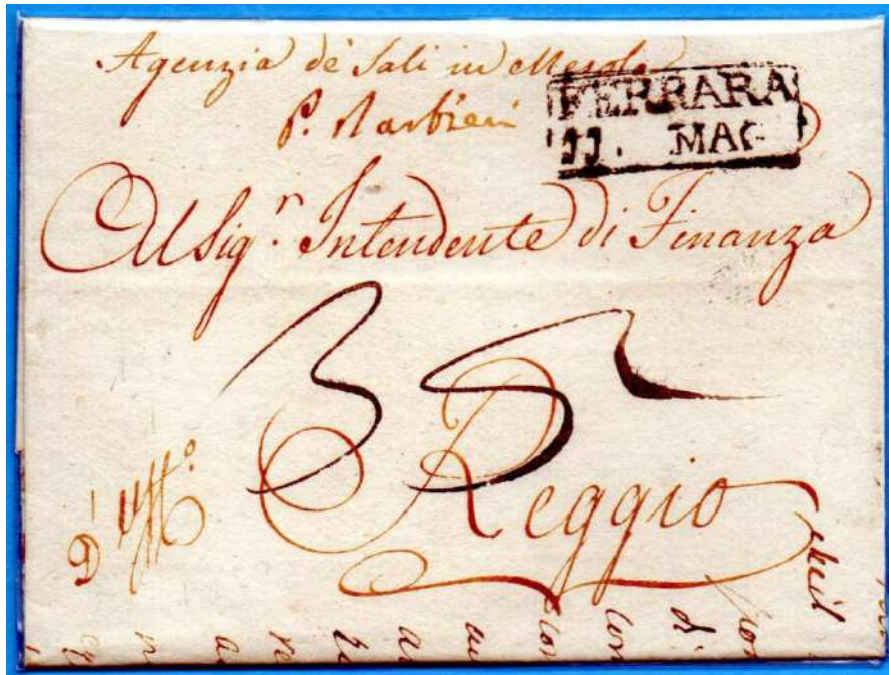 Agenzia de' Sali in Mesola
P. Barbieri
FERRARA
11. MAG
Al Sig.r Intendente di Finanza
35
Reggio
D' Uff.o